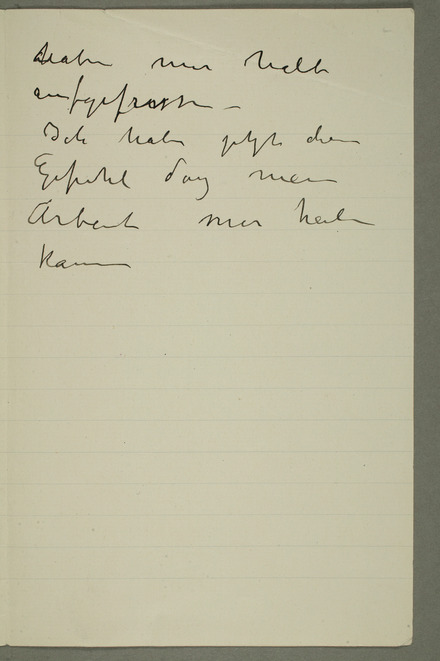 haben mir halb
aufgefressen –
Ich habe jetzt den
Gefühl daß mein
Arbeit mir heilen
kann